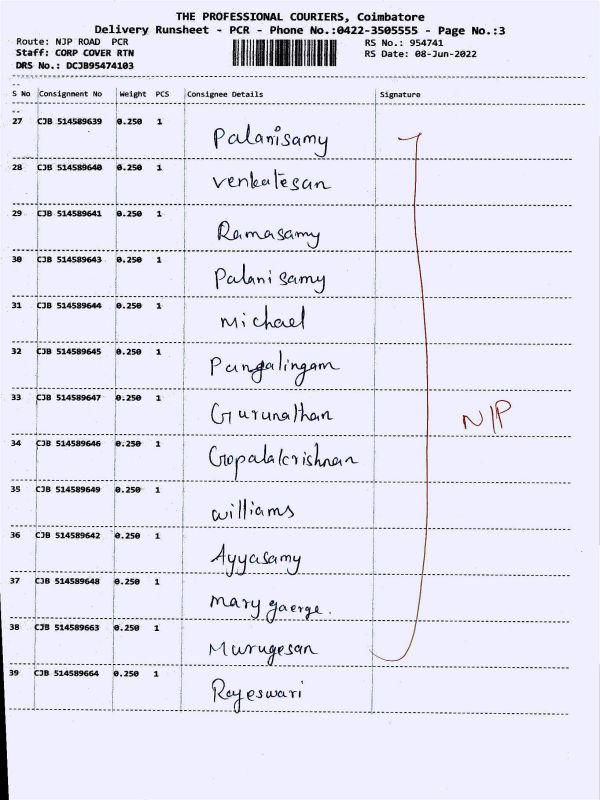 THE PROFESSIONAL COURIERS, Coimbatore
Delivery Runsheet - PCR - Phone No.:0422-3505555 - Page No.:3
Route: NJP ROAD PCR RS No.: 954741
Staff: CORP COVER RTN RS Date: 08-Jun-2022
DRS No.: DCJB95474103
S No Consignment No Weight PCS Consignee Details Signature
27 CJB 514589639 0.250 1 Palanisamy
28 CJB 514589640 0.250 1 Venkatesan
29 CJB 514589641 0.250 1 Ramasamy
30 CJB 514589643 0.250 1 Palanisamy
31 CJB 514589644 0.250 1 Michael
32 CJB 514589645 0.250 1 Pungalingam
33 CJB 514589647 0.250 1 Gurunathan N/P
34 CJB 514589646 0.250 1 Gopalakrishnan
35 CJB 514589649 0.250 1 Williams
36 CJB 514589642 0.250 1 Ayyasamy
37 CJB 514589648 0.250 1 Mary gaerge.
38 CJB 514589663 0.250 1 Murugesan
39 CJB 514589664 0.250 1 Rayeswari